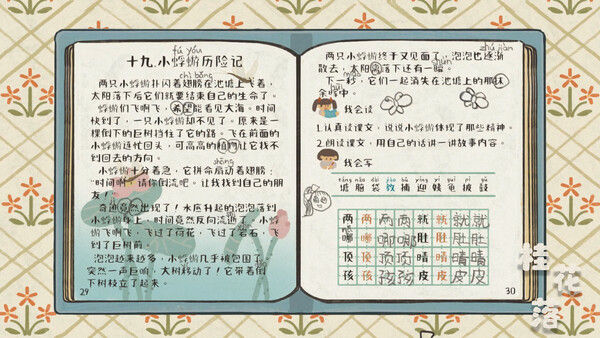 fú yóu
十九、小蜉蝣历险记
chì bǎng
两只小蜉蝣扑闪着翅膀在池塘上飞着，
太阳落下后它们就要结束自己的生命了
蜉蝣们飞啊飞，希望能看见大海。时间
快到了，一只小蜉蝣却不见了。原来是一
棵倒下的巨树挡住了它的路。飞在前面的
小蜉蝣连忙回头，可高高的植物让它找不
到回去的方向。
小蜉蝣十分着急，它拼命扇动着翅膀：
“时间啊！请你倒流吧。让我找到自己的朋
友！”
奇迹竟然出现了！水底升起的泡泡落到
小蜉蝣身上，时间竟然反向流逝。小蜉
蝣飞啊飞，飞过了荷花，飞过了岩石，飞
到了巨树前。
泡泡越来越多，小蜉蝣几乎被包围了。
突然一声巨响，大树移动了！它带着倒
下树枝立了起来。
29
zhú jiàn
两只小蜉蝣终于又见面了，泡泡也逐渐
散去，太阳落下还有一瞬。
下一秒，它们一起消失在池塘上的那抹
余晖中。
我会读
1.认真读课文，说说小蜉蝣体现了那些精神。
2.朗读课文，用自己的话讲一讲故事内容。
我会写
táng nǎo dài jiào bǔ yíng yí guī pī gǔ
塘 脑 袋 教 捕 迎 姨 龟 披 鼓
两 两 两 两 就 就 就 就
哪 哪 哪 哪 肚 肚 肚 肚
顶 顶 顶 顶 晴 晴 晴 晴
孩 孩 孩 孩 皮 皮 皮 皮
30
桂花落